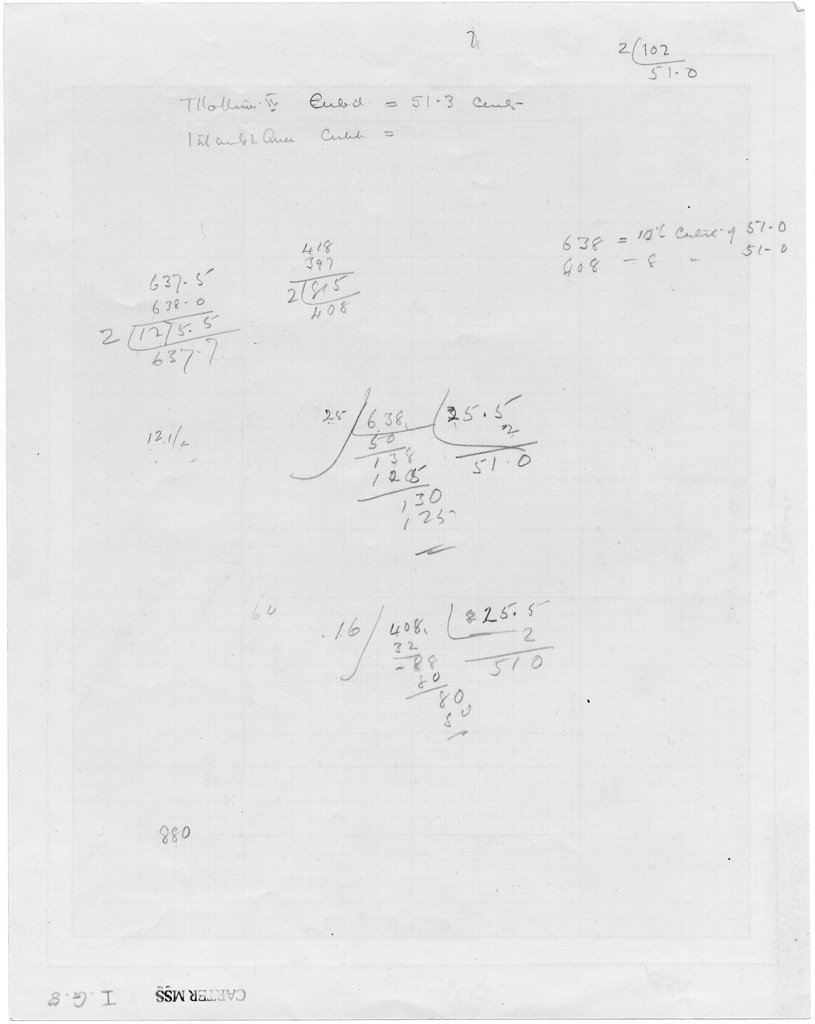 2
2 (102
51.0
Cubit = 51.3 cents
Tutankhamen Cubit =
638 = 12½ Cubits of 51.0
408 = 8 " 51.0
418
397
2 (815
408
637.5
638.0
2 (1275.5
637.7
12.1/2
25 / 638. ( 25.5
50 2
138 51.0
125
130
125
64
16 / 408. ( 25.5
32 2
88 510
80
80
80
880
CARTER MSS I.G.8